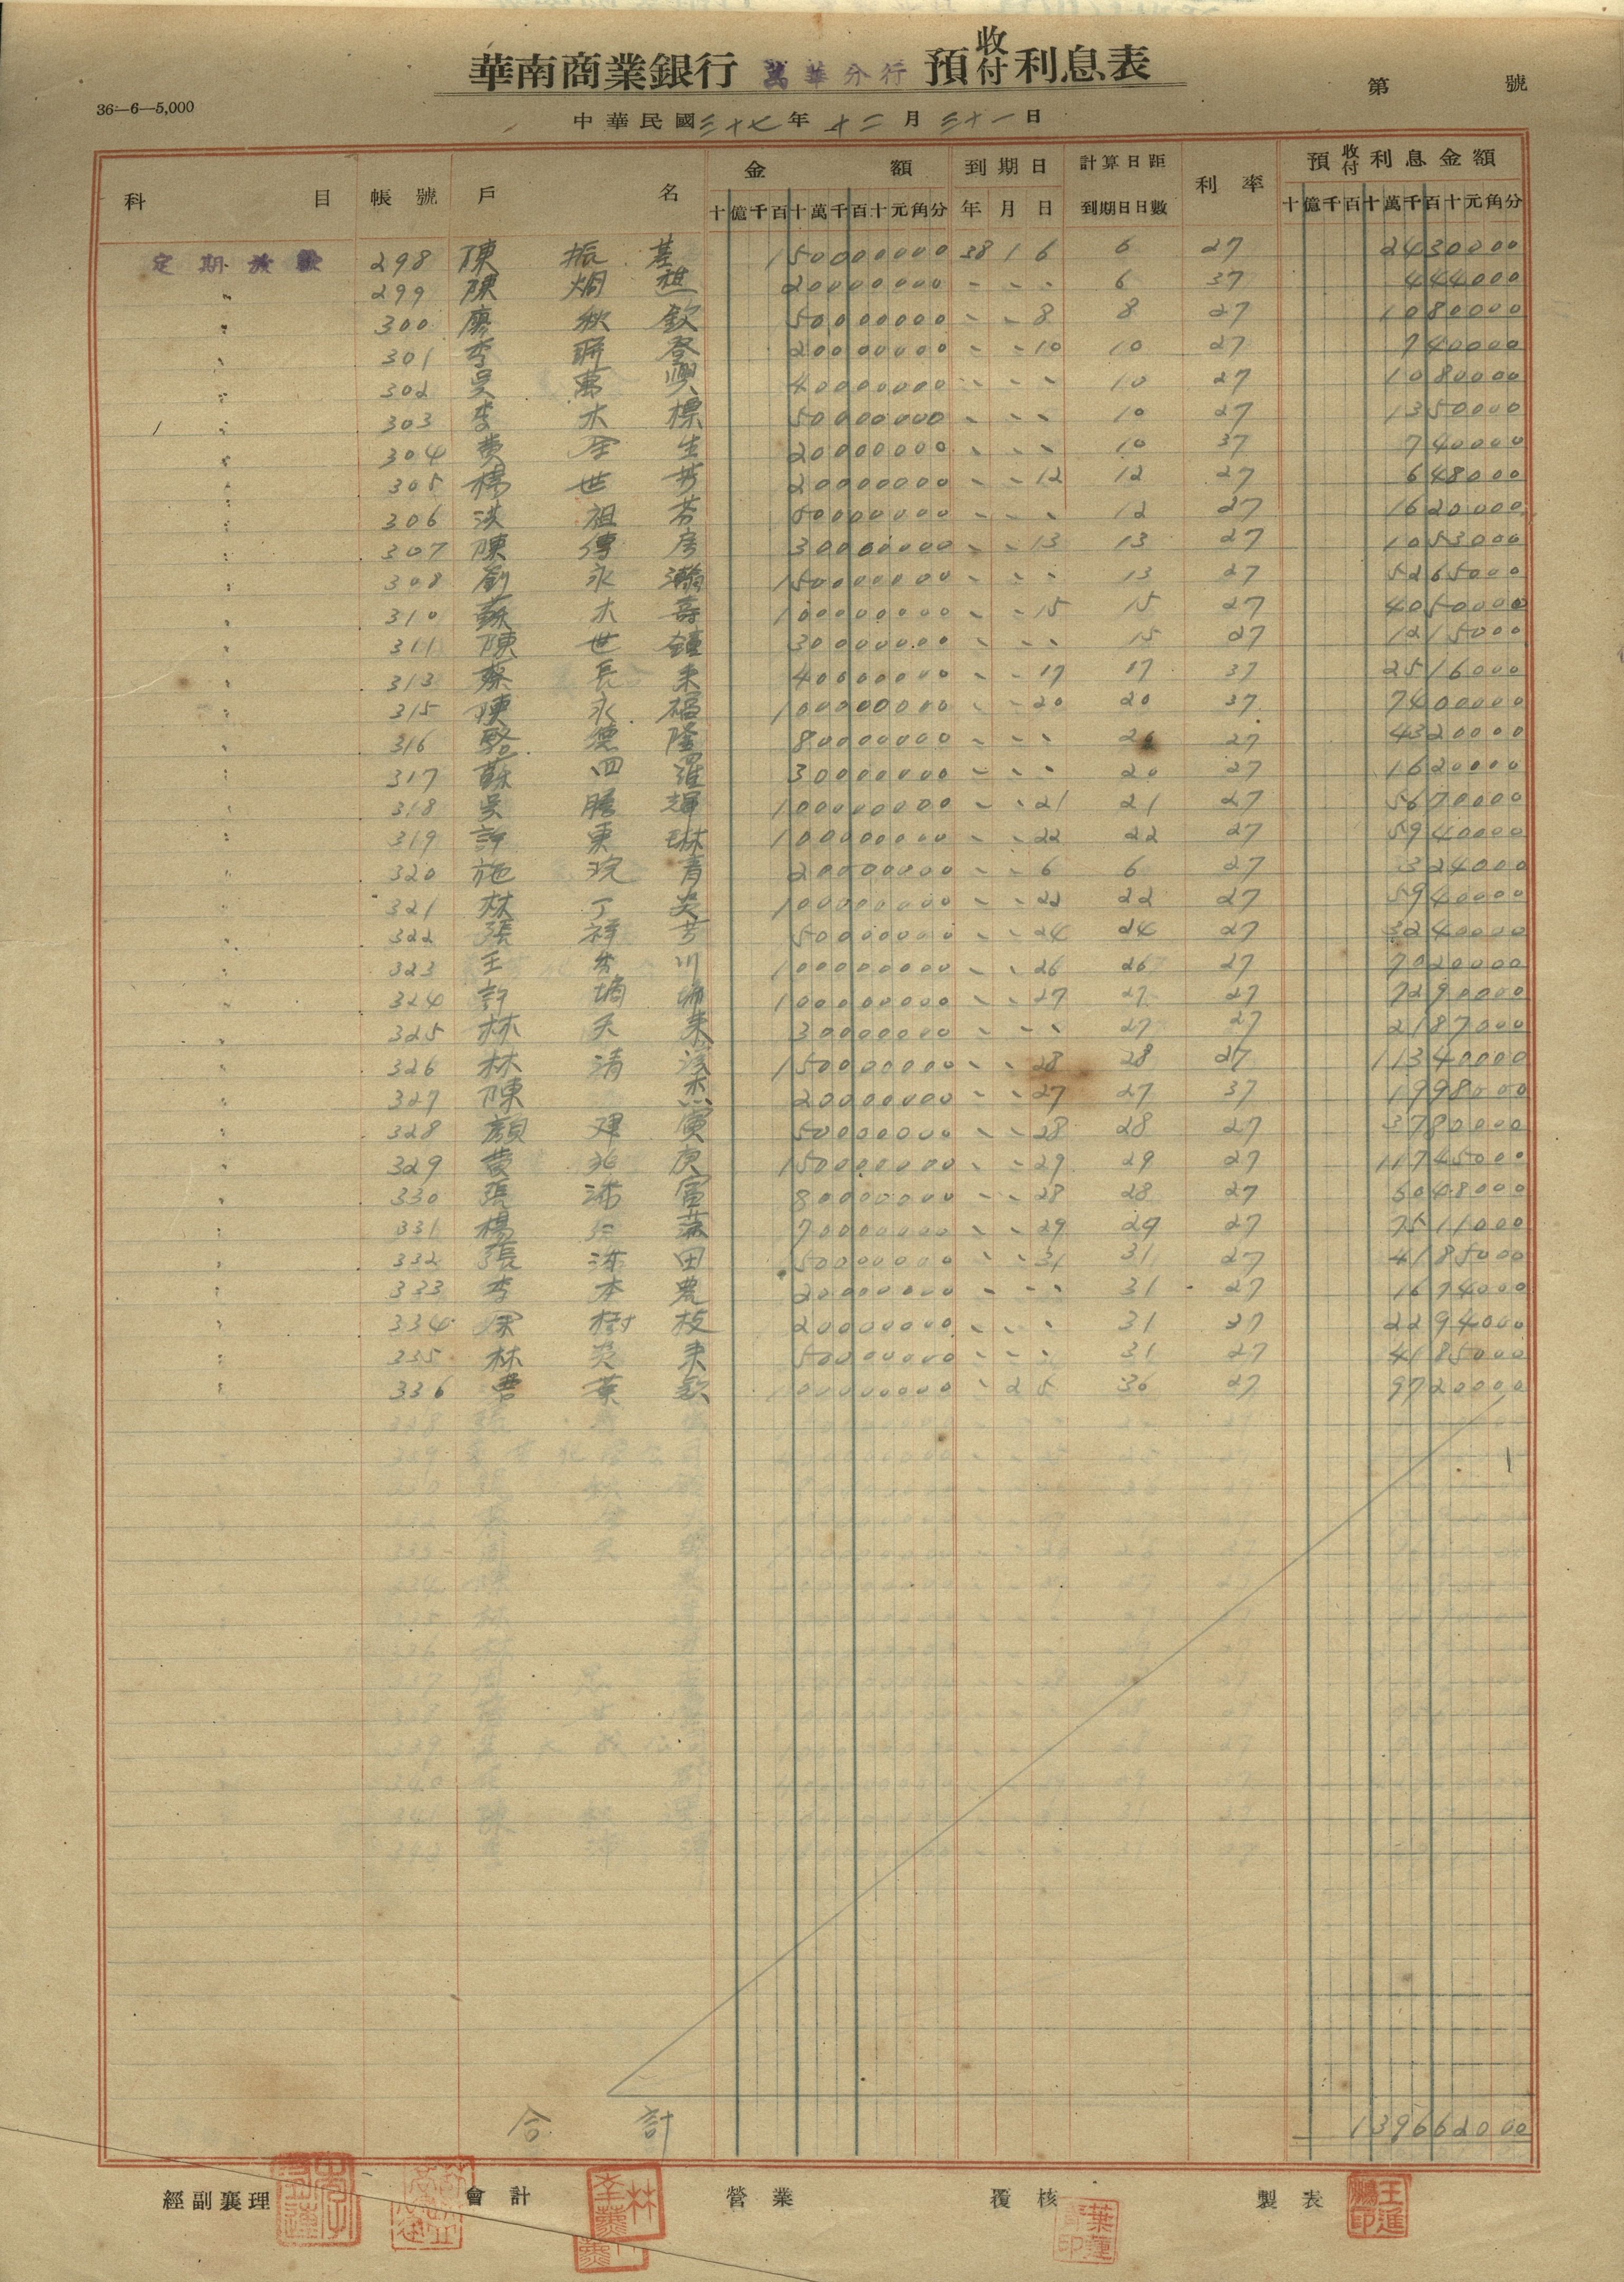 華南商業銀行 萬華分行 預收付利息表
第 號
36—6—5,000
中華民國三十七年十二月三十一日
科目 帳號 戶名 金額 到期日 計算日距到期日日數 利率 預收付利息金額
十億千百十萬千百十元角分 年月日 十億千百十萬千百十元角分
定期放款 298 陳振基 150000000 38 1 6 6 27 2430000
〃 299 陳 20000000 〃 〃 〃 6 37 444000
〃 300 廖秋欽 50000000 〃 〃 8 8 27 1080000
〃 301 李 20000000 〃 〃 10 10 27 740000
〃 302 吳萬興 40000000 〃 〃 〃 10 27 1080000
〃 303 李木標 50000000 〃 〃 〃 10 27 1350000
〃 304 黃金生 20000000 〃 〃 〃 10 37 740000
〃 305 楊世芳 20000000 〃 〃 12 12 27 648000
〃 306 洪祖芬 50000000 〃 〃 〃 12 27 1620000
〃 307 陳傳房 30000000 〃 〃 13 13 27 1053000
〃 308 劉永瀚 150000000 〃 〃 〃 13 27 5265000
〃 310 蘇木壽 100000000 〃 〃 15 15 27 4050000
〃 311 陳世鐘 30000000 〃 〃 〃 15 27 1215000
〃 313 蔡長來 40000000 〃 〃 17 17 37 2516000
〃 315 陳永福 100000000 〃 〃 20 20 37 7400000
〃 316 駱德隆 80000000 〃 〃 〃 20 27 4320000
〃 317 蘇四羅 30000000 〃 〃 〃 20 27 1620000
〃 318 吳騰輝 100000000 〃 〃 21 21 27 5670000
〃 319 許東琳 100000000 〃 〃 22 22 27 5940000
〃 320 施浣青 20000000 〃 〃 6 6 27 324000
〃 321 林丁炎 100000000 〃 〃 22 22 27 5940000
〃 322 張祥芳 50000000 〃 〃 24 24 27 3240000
〃 323 王 川 100000000 〃 〃 26 26 27 7020000
〃 324 許 100000000 〃 〃 27 27 27 7290000
〃 325 林天來 30000000 〃 〃 〃 27 27 2187000
〃 326 林清 150000000 〃 〃 28 28 27 11340000
〃 327 陳杰 20000000 〃 〃 27 27 37 1998000
〃 328 顏建寅 50000000 〃 〃 28 28 27 3780000
〃 329 黃兆庚 150000000 〃 〃 29 29 27 11745000
〃 330 張沛富 80000000 〃 〃 28 28 27 6048000
〃 331 楊 70000000 〃 〃 29 29 27 7511000
〃 332 張 田 50000000 〃 〃 31 31 27 4185000
〃 333 李本農 20000000 〃 〃 〃 31 27 1674000
〃 334 樹枝 20000000 〃 〃 〃 31 37 2294000
〃 335 林炎來 50000000 〃 〃 〃 31 27 4185000
〃 336 曹葉欽 100000000 〃 2 5 36 27 9720000
合計 139662000
經副襄理 會計 營業 覆核 製表